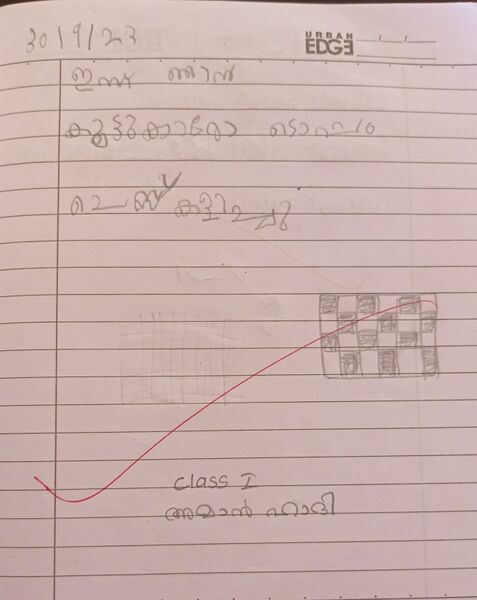 30/9/23
URBAN EDGE
ഇന്ന് ഞാൻ
കൂട്ടുകാരോ ടൊപ്പം
ചെസ്സ് കളിച്ചു
Class I
അമാൻ ഹാദി